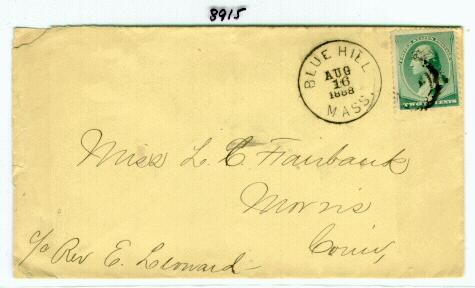 8915
BLUE HILL
AUG
16
1888
MASS.
UNITED STATES POSTAGE
TWO CENTS
Miss L C Fairbank
Morris
Conn,
c/o Rev E. Leonard